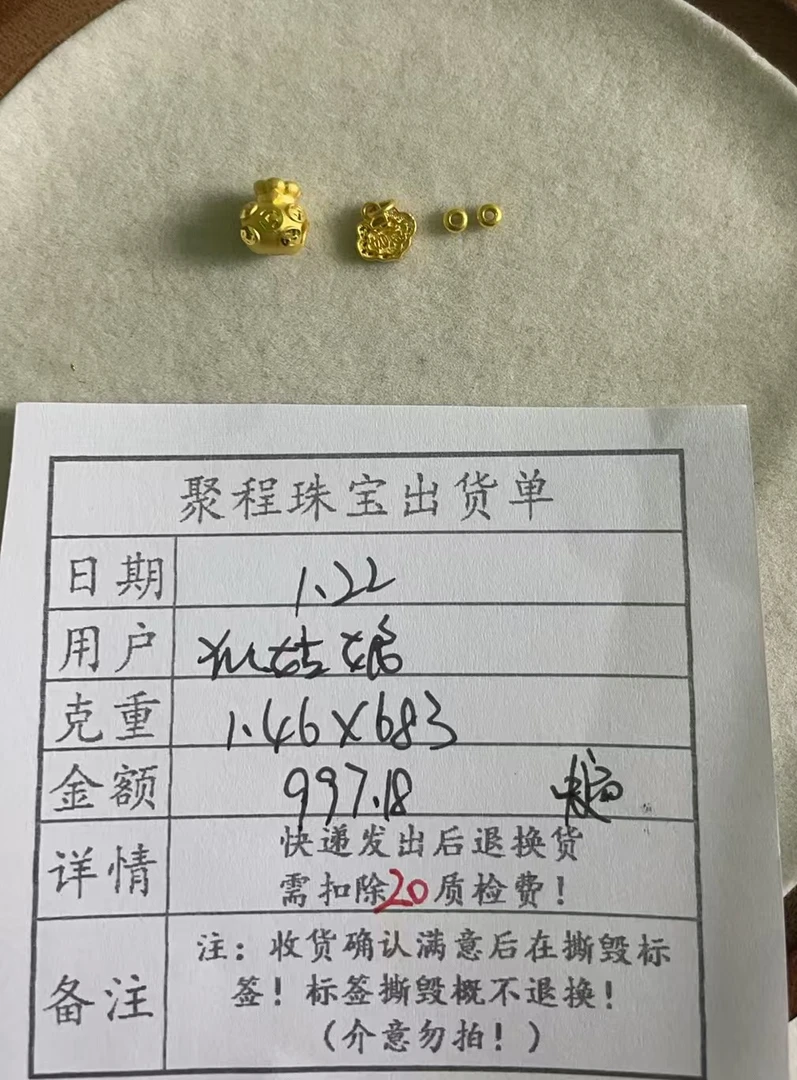 聚程珠宝出货单
日期 1.22
用户 姑娘
克重 1.46×683
金额 997.18
详情 快递发出后退换货
需扣除20质检费!
备注 注:收货确认满意后在撕毁标
签!标签撕毁概不退换!
(介意勿拍!)